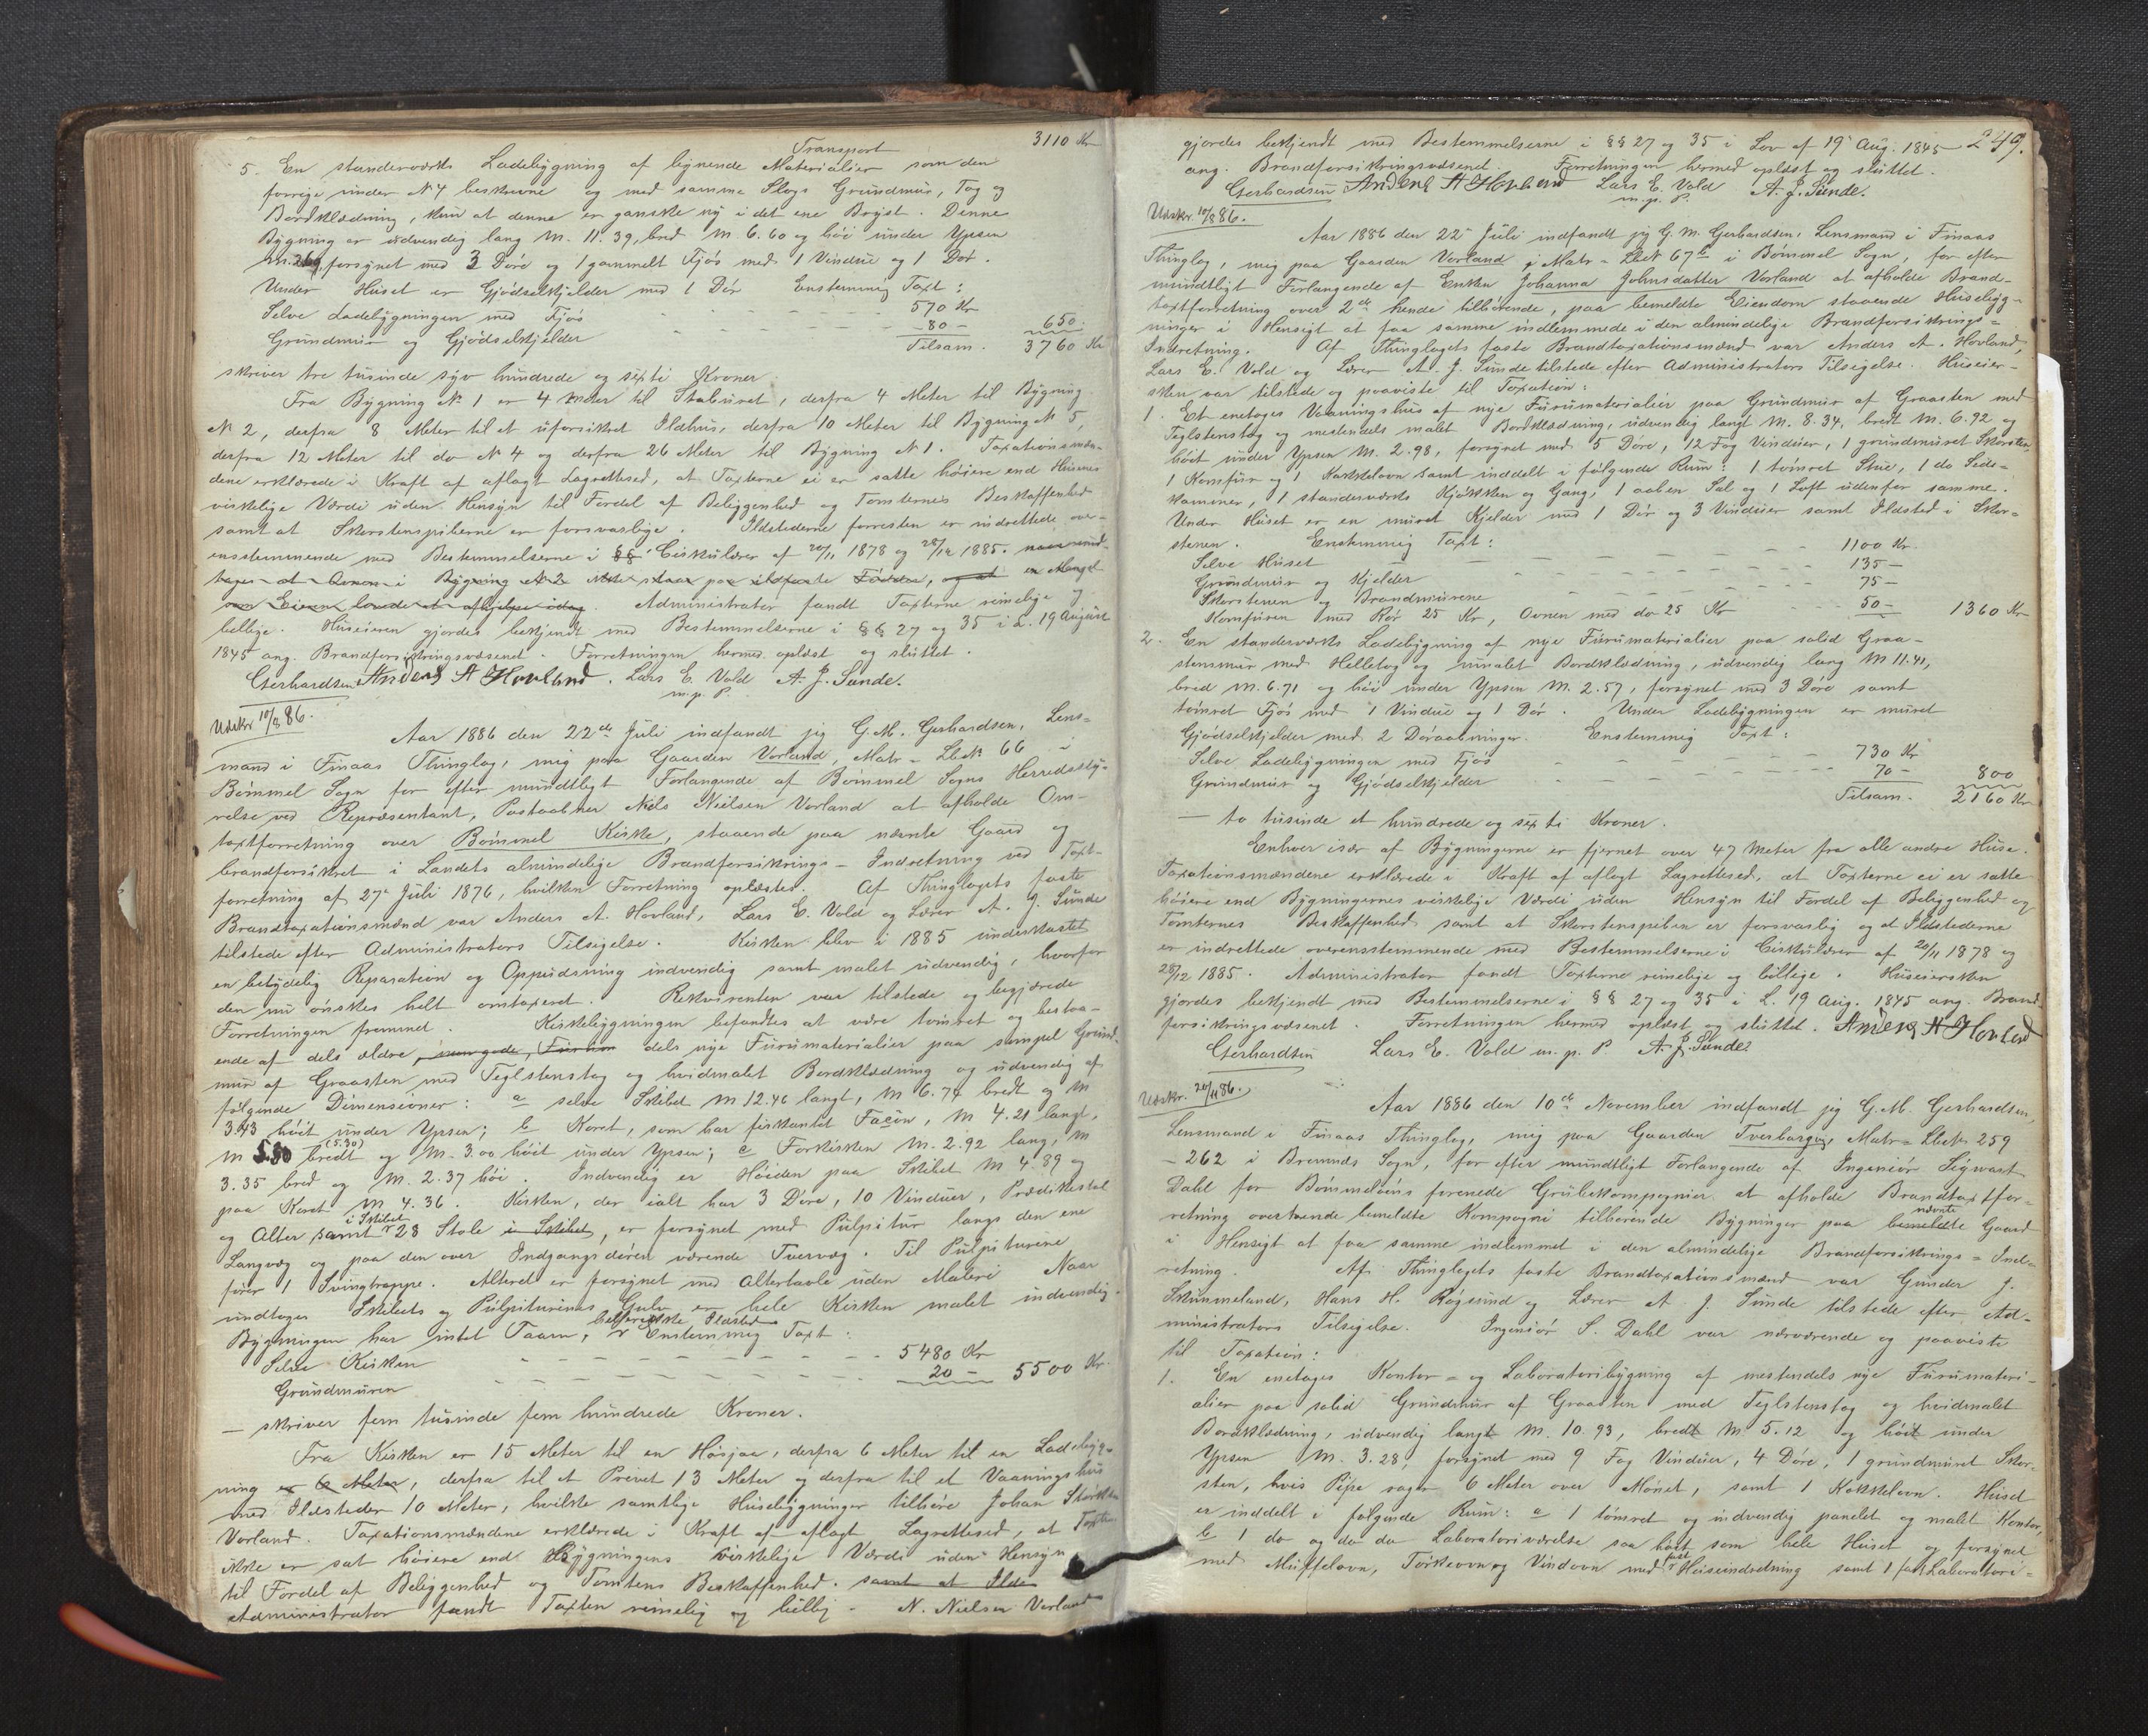 Transport 3110 Kr
5. En standerværks Ladebygning af lignende Materialier som den
forrige under N 4 beskrevne og med samme Slags Grundmur, Tag og
Bordklædning, kun at denne er ganske ny i det ene Bryst. Denne
Bygning er udvendig lang M. 11.39, bred M 6.60 og høi under Ypsen
forsynet med 3 Døre og 1 gammelt Fjøs med 1 Vindue og 1 Dør.
Under Huset er Gjødselkjelder med 1 Dør Enstemmig Taxt:
Selve Ladebygningen med Fjøs 570 Kr
Grundmur og Gjødselkjelder 80 - 650
Tilsam. 3760 Kr
skriver tre tusinde syv hundrede og sexti Kroner.
Fra Bygning N 1 er 4 Meter til Staburet, derfra 4 Meter til Bygning
N 2, derfra 8 Meter til et uforsikret Ildhus, derfra 10 Meter til Bygning N 5,
derfra 12 Meter til do N 4 og derfra 26 Meter til Bygning N 1. Taxationsmæn-
dene erklærede i Kraft af aflagt Lagrettesed, at Taxterne ei er satte høiere end Husenes
virkelige Værdi uden Hensyn til Fordel af Beliggenhed og Tomternes Beskaffenhed
samt at Skorstenspiberne er forsvarlige. Ildstederne forresten er indrettede over-
ensstemmende med Bestemmelserne i §§ Cirkulærer af 20/11 1878 og 28/12 1885. naar und-
tages at Ovnen i Bygning N 2 ikke staar paa ildfaste Fødder, og at en Mangel
som Eieren lovede at afhjelpe idag. Administrator fandt Taxterne rimelige og
billige. Huseieren gjordes bekjendt med Bestemmelserne i §§ 27 og 35 i L. 19 August
1845 ang. Brandforsikringsvæsenet. Forretningen hermed oplæst og sluttet.
Gerhardsen Anders A Hovland. Lars E. Vold A. J. Sunde.
m. p. P.
Udskr. 10/8 86.
Aar 1886 den 22de Juli indfandt jeg G. M. Gerhardsen, Lens-
mand i Finaas Thinglag, mig paa Gaarden Vorland, Matr- LbN 66 i
Bømmel Sogn for efter mundtligt Forlangende af Bømmel Sogns Herredssty-
relse ved Repræsentant, Postaabner Niels Nielsen Vorland at afholde Om-
taxtforretning over Bømmel Kirke, staaende paa nævnte Gaard og
brandforsikret i Landets almindelige Brandforsikrings-Indretning ved Taxt-
forretning af 27de Juli 1876, hvilken Forretning oplæstes. Af Thinglagets faste
Brandtaxationsmænd var Anders A. Hovland, Lars E. Vold og Lærer A. J. Sunde
tilstede efter Administrators Tilsigelse. Kirken blev i 1885 underkastet
en betydelig Reparation og Oppudsning indvendig samt malet udvendig, hvorfor
den nu ønskes helt omtaxeret. Rekvirenten var tilstede og begjærede
Forretningen fremmet. Kirkebygningen befandtes at være tømret og bestaa-
ende af dels ældre, men gode, dels nye Furumaterialier paa simpel Grund-
mur af Graasten med Teglstenstag og hvidmalet Bordklædning og udvendig af
følgende Dimensioner: a selve Skibet M 12.46 langt, M 6.74 bredt og M
3.43 høit under Ypsen; b Koret, som har firkantet Façon, M 4.21 langt,
M 5.30 (5.30) bredt og M. 3.00 høit under Ypsen; c Forkirken M. 2.92 lang, M
3.35 bred og M. 2.37 høi. Indvendig er Høiden paa Skibet M 4.89 og
paa Koret M 4.36. Kirken, der ialt har 3 Døre, 10 Vinduer, Prædikestol
og Alter samt i Skibet 28 Stole i Skibet, er forsynet med Pulpitur langs den ene
Langvæg og paa den over Indgangsdøren værende Tvervæg. Til Pulpiturene
fører 1 Svingtrappe. Alteret er forsynet med Altertavle uden Maleri Naar
undtages Skibets og Pulpiturenes Gulv er hele Kirken malet indvendig.
Bygningen har intet Taarn, Enstemmig Taxt:
Selve Kirken 5480 Kr
Grundmuren 20 - 5500 Kr.
- skriver fem tusinde fem hundrede Kroner.
Fra Kirken er 15 Meter til en Høsjaa, derfra 6 Meter til en Ladebyg-
ning er 6 Meter, derfra til et Privet 13 Meter og derfra til et Vaaningshus
med Ildsteder 10 Meter, hvilke samtlige Husebygninger tilhøre Johan
Vorland. Taxationsmændene erklærede i Kraft af aflagt Lagrettesed, at Taxten
ikke er sat høiere end Bygningens virkelige Værdi uden Hensyn
til Fordel af Beliggenhed og Tomtens Beskaffenhed. samt at Ilde
Administrator fandt Taxten rimelig og billig - N. Nielsen Vorland
249.
gjordes bekjendt med Bestemmelserne i §§ 27 og 35 i Lov af 19 Aug. 1845
ang. Brandforsikringsvæsenet. Forretningen hermed oplæst og sluttet.
Gerhardsen Anders A Hovland Lars E. Vold A. J. Sunde.
m. p. P.
Udskr. 10/8 86.
Aar 1886 den 22de Juli indfandt jeg G. M. Gerhardsen, Lensmand i Finaas
Thinglag, mig paa Gaarden Vorland, Matr- LbN 67b i Bømmel Sogn, for efter
mundtligt Forlangende af Enken Johanna Johnsdatter Vorland at afholde Brand-
taxtforretning over 2de hende tilhørende, paa bemeldte Eiendom staaende Husebyg-
ninger i Hensigt at faa samme indlemmede i den almindelige Brandforsikrings-
Indretning. Af Thinglagets faste Brandtaxationsmænd var Anders A. Hovland,
Lars E. Vold og Lærer A. J. Sunde tilstede efter Administrators Tilsigelse. Huseier-
sken var tilstede og paaviste til Taxation:
1. Et enetages Vaaningshus af nye Furumaterialier paa Grundmur af Graasten med
Teglstenstag og mestendels malet Bordklædning, udvendig langt M. 8.34, bredt M. 6.92 og
høit under Ypsen M. 2.98, forsynet med 5 Døre, 12 Fag Vinduer, 1 grundmuret Skorsten,
1 Komfur og 1 Kakkelovn samt inddelt i følgende Rum: 1 tømret Stue, 1 do Side-
kammer, 1 standerværks Kjøkken og Gang, 1 aaben Sal og 1 Loft udenfor samme.
Under Huset er en muret Kjelder med 1 Dør og 3 Vinduer samt Ildsted i Skor-
stenen. Enstemmig Taxt:
Selve Huset 1100 Kr.
Grundmur og Kjelder 135 -
Skorstenen og Brandmurene 75 -
Komfuren med Rør 25 Kr, Ovnen med do 25 Kr 50 - 1360 Kr
2. En standerværks Ladebygning af nye Furumaterialier paa solid Graa-
stensmur med Helletag og umalet Bordklædning, udvendig lang M 11.41,
bred M. 6.71 og høi under Ypsen M. 2.57, forsynet med 3 Døre samt
tømret Fjøs med 1 Vindue og 1 Dør. Under Ladebygningen er muret
Gjødselkjelder med 2 Døraabninger. Enstemmig Taxt:
Selve Ladebygningen med Fjøs 730 Kr
Grundmur og Gjødselkjelder 70 - 800
Tilsam. 2160 Kr
- to tusinde et hundrede og sexti Kroner.
Enhver især af Bygningerne er fjernet over 47 Meter fra alle andre Huse.
Taxationsmændene erklærede i Kraft af aflagt Lagrettesed, at Taxterne ei er satte
høiere end Bygningernes virkelige Værdi uden Hensyn til Fordel af Beliggenhed og
Tomternes Beskaffenhed samt at Skorstenspiben er forsvarlig og at Ildstederne
er indrettede overensstemmende med Bestemmelserne i Cirkulærer af 20/11 1878 og
28/12 1885. Administrator fandt Taxterne rimelige og billige. Huseiersken
gjordes bekjendt med Bestemmelserne i §§ 27 og 35 i L. 19 Aug. 1845 ang. Brand-
forsikringsvæsenet. Forretningen hermed oplæst og sluttet. Anders A Hovland
Gerhardsen Lars E. Vold m. p. P A. J. Sunde
Udskr. 20/11 86.
Aar 1886 den 10de November indfandt jeg G. M. Gerhardsen,
Lensmand i Finaas Thinglag, mig paa Gaarden Tverborgvig, Matr- LbN 259
- 262 i Bremnæs Sogn, for efter mundtligt Forlangende af Ingeniør Sigwart
Dahl for Bømmeløens forenede Grubekompagnier at afholde Brandtaxtfor-
retning over bemeldte Kompagni tilhørende Bygninger paa bemeldte nævnte Gaard
i Hensigt at faa samme indlemmet i den almindelige Brandforsikrings-Ind-
retning. Af Thinglagets faste Brandtaxationsmænd var Gunder J.
Skimmeland, Hans H. Røgsund og Lærer A. J. Sunde tilstede efter Ad-
ministrators Tilsigelse. Ingeniør S. Dahl var nærværende og paaviste
til Taxation:
1. En enetages Kontor- og Laboratoribygning af mestendels nye Furumateri-
alier paa solid Grundmur af Graasten med Teglstenstag og hvidmalet
Bordklædning, udvendig langt M. 10.93, bredt M 5.12 og høit under
Ypsen M. 3.28, forsynet med 9 Fag Vinduer, 4 Døre, 1 grundmuret Skor-
sten, hvis Pipe rager 6 Meter over Mønet, samt 1 Kakkelovn. Huset
er inddelt i følgende Rum: a 1 tømret og indvendig panelet og malet Kontor,
b 1 do og do do Laboratoriværelse saa høit som hele Huset og forsynet
med Muffelovn, Tørkeovn og Vindovn med fast Huseindredning samt 1 fast Laboratori-